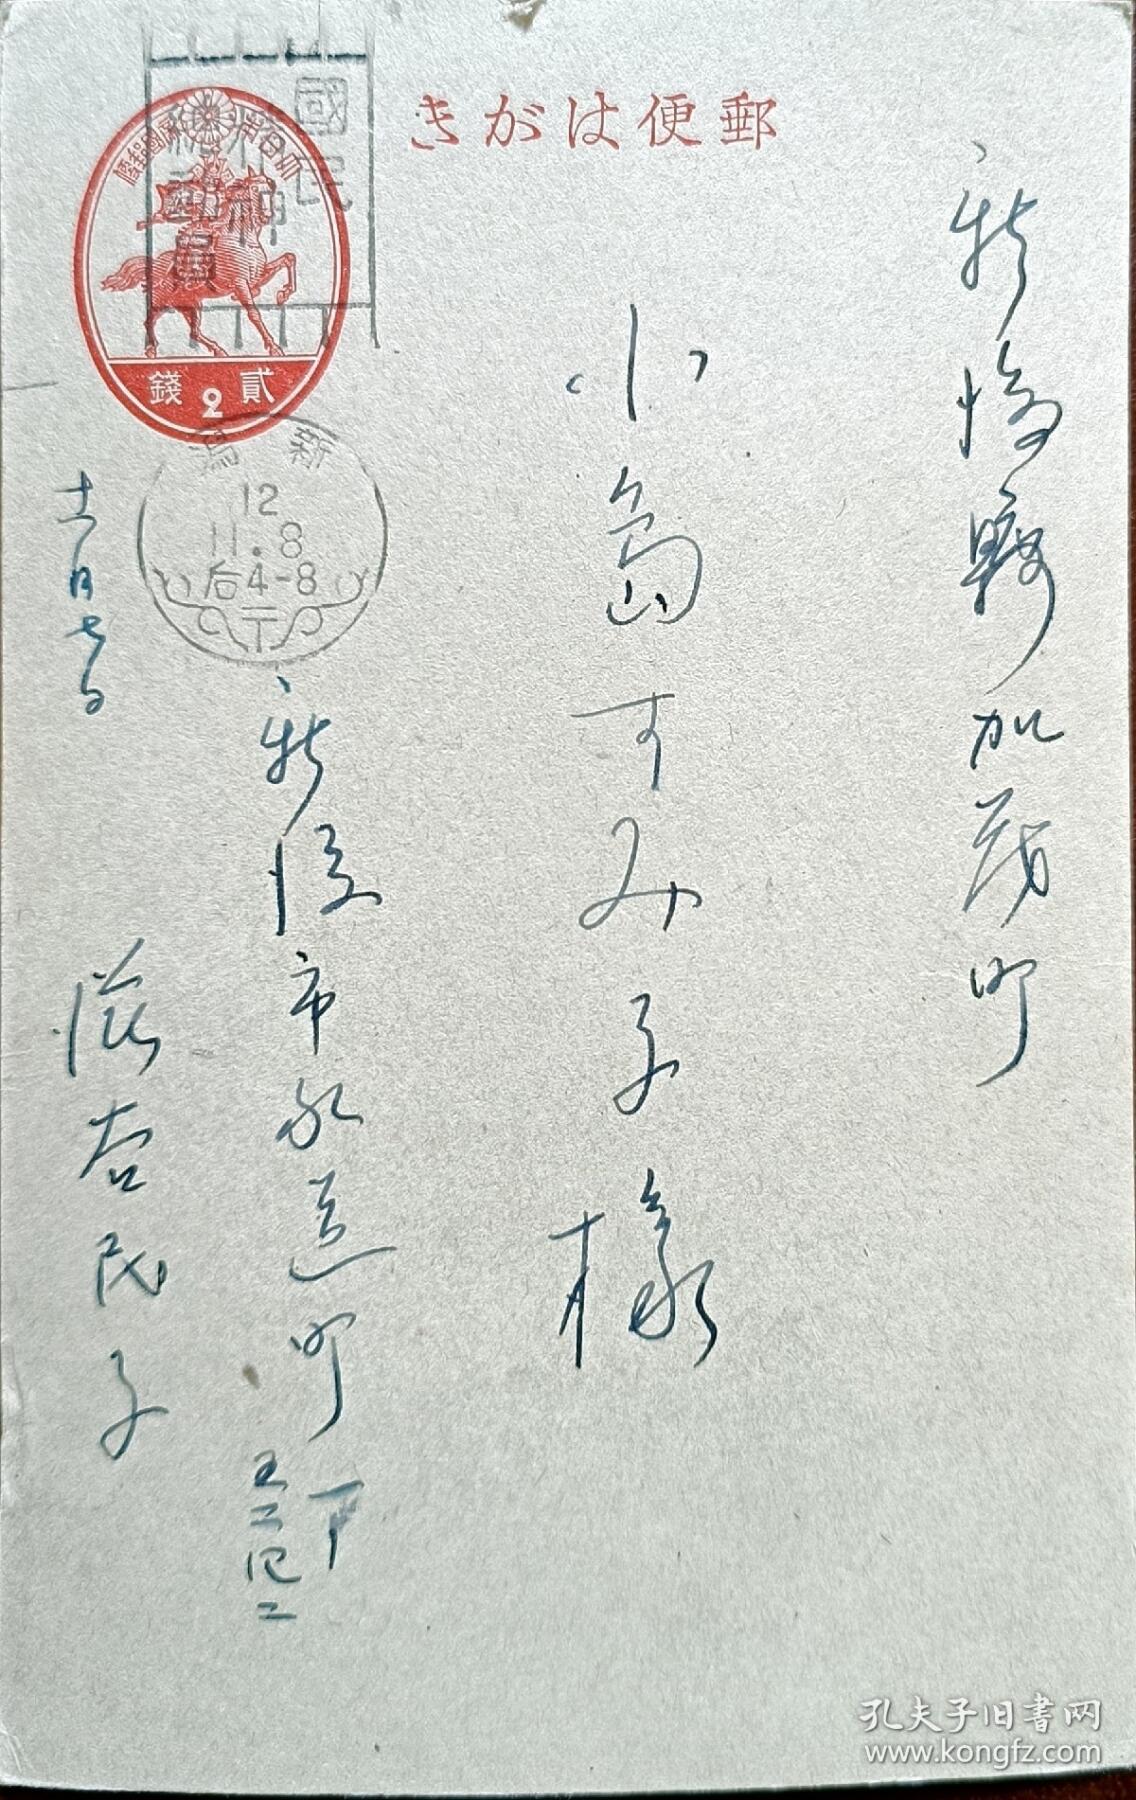 郵便はがき
國民
精神
總動員
大日本帝國郵便
貳2錢
新潟
12
11.8
后4-8
新潟縣加茂町
小島すみ子様
新潟市水道町一丁
五二〇二
十一月七日
澁谷民子
孔夫子旧書网
www.kongfz.com